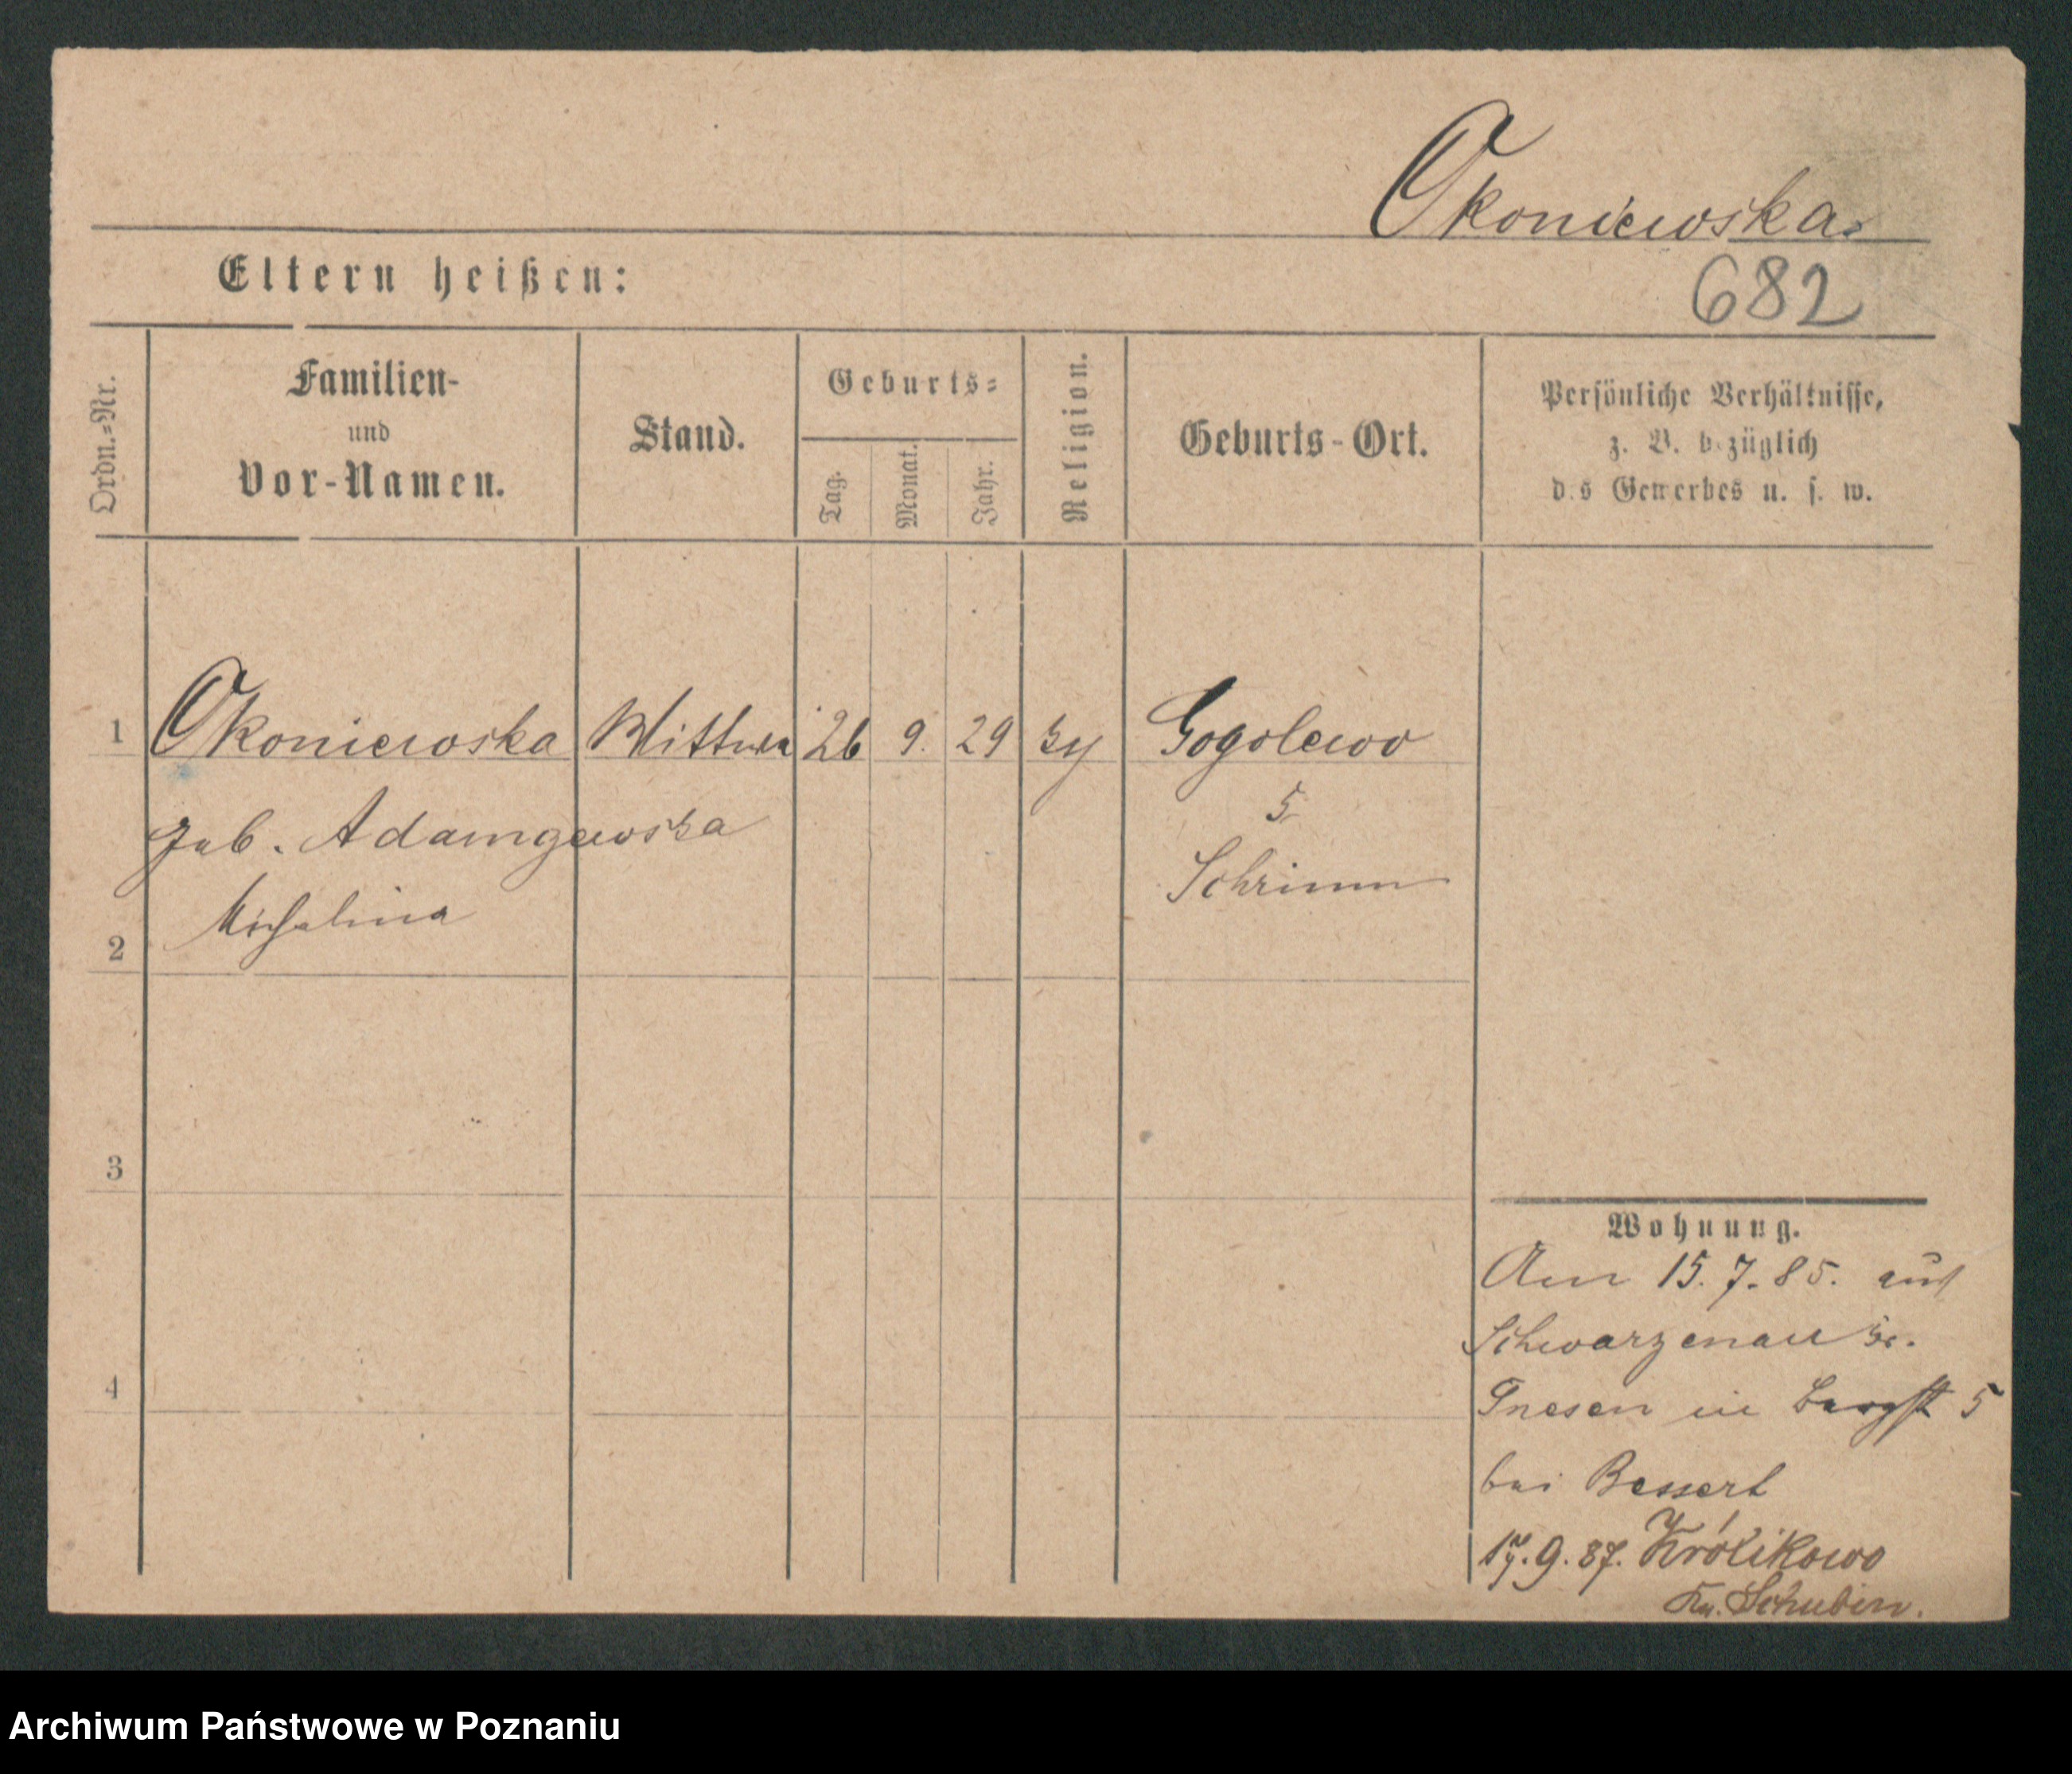 Okoniewska.
Eltern heißen:
682
Ordn.=Nr.
Familien-
und
Vor-Namen.
Stand.
Geburts=
Tag.
Monat.
Jahr.
Religion.
Geburts-Ort.
Persönliche Verhältnisse,
z. B. bezüglich
des Gewerbes u. s. w.
1 Okoniewska Wittwe 26 9. 29 Gogolewo
geb. Adamzewska
Schrimm
Michalina
2
3
4
Wohnung.
Am 15.7.85. aus
Schwarzenau Kr.
Gnesen in 5
bei Bessert
17.9.87. Królikowo
Kr. Schubin.
Archiwum Państwowe w Poznaniu